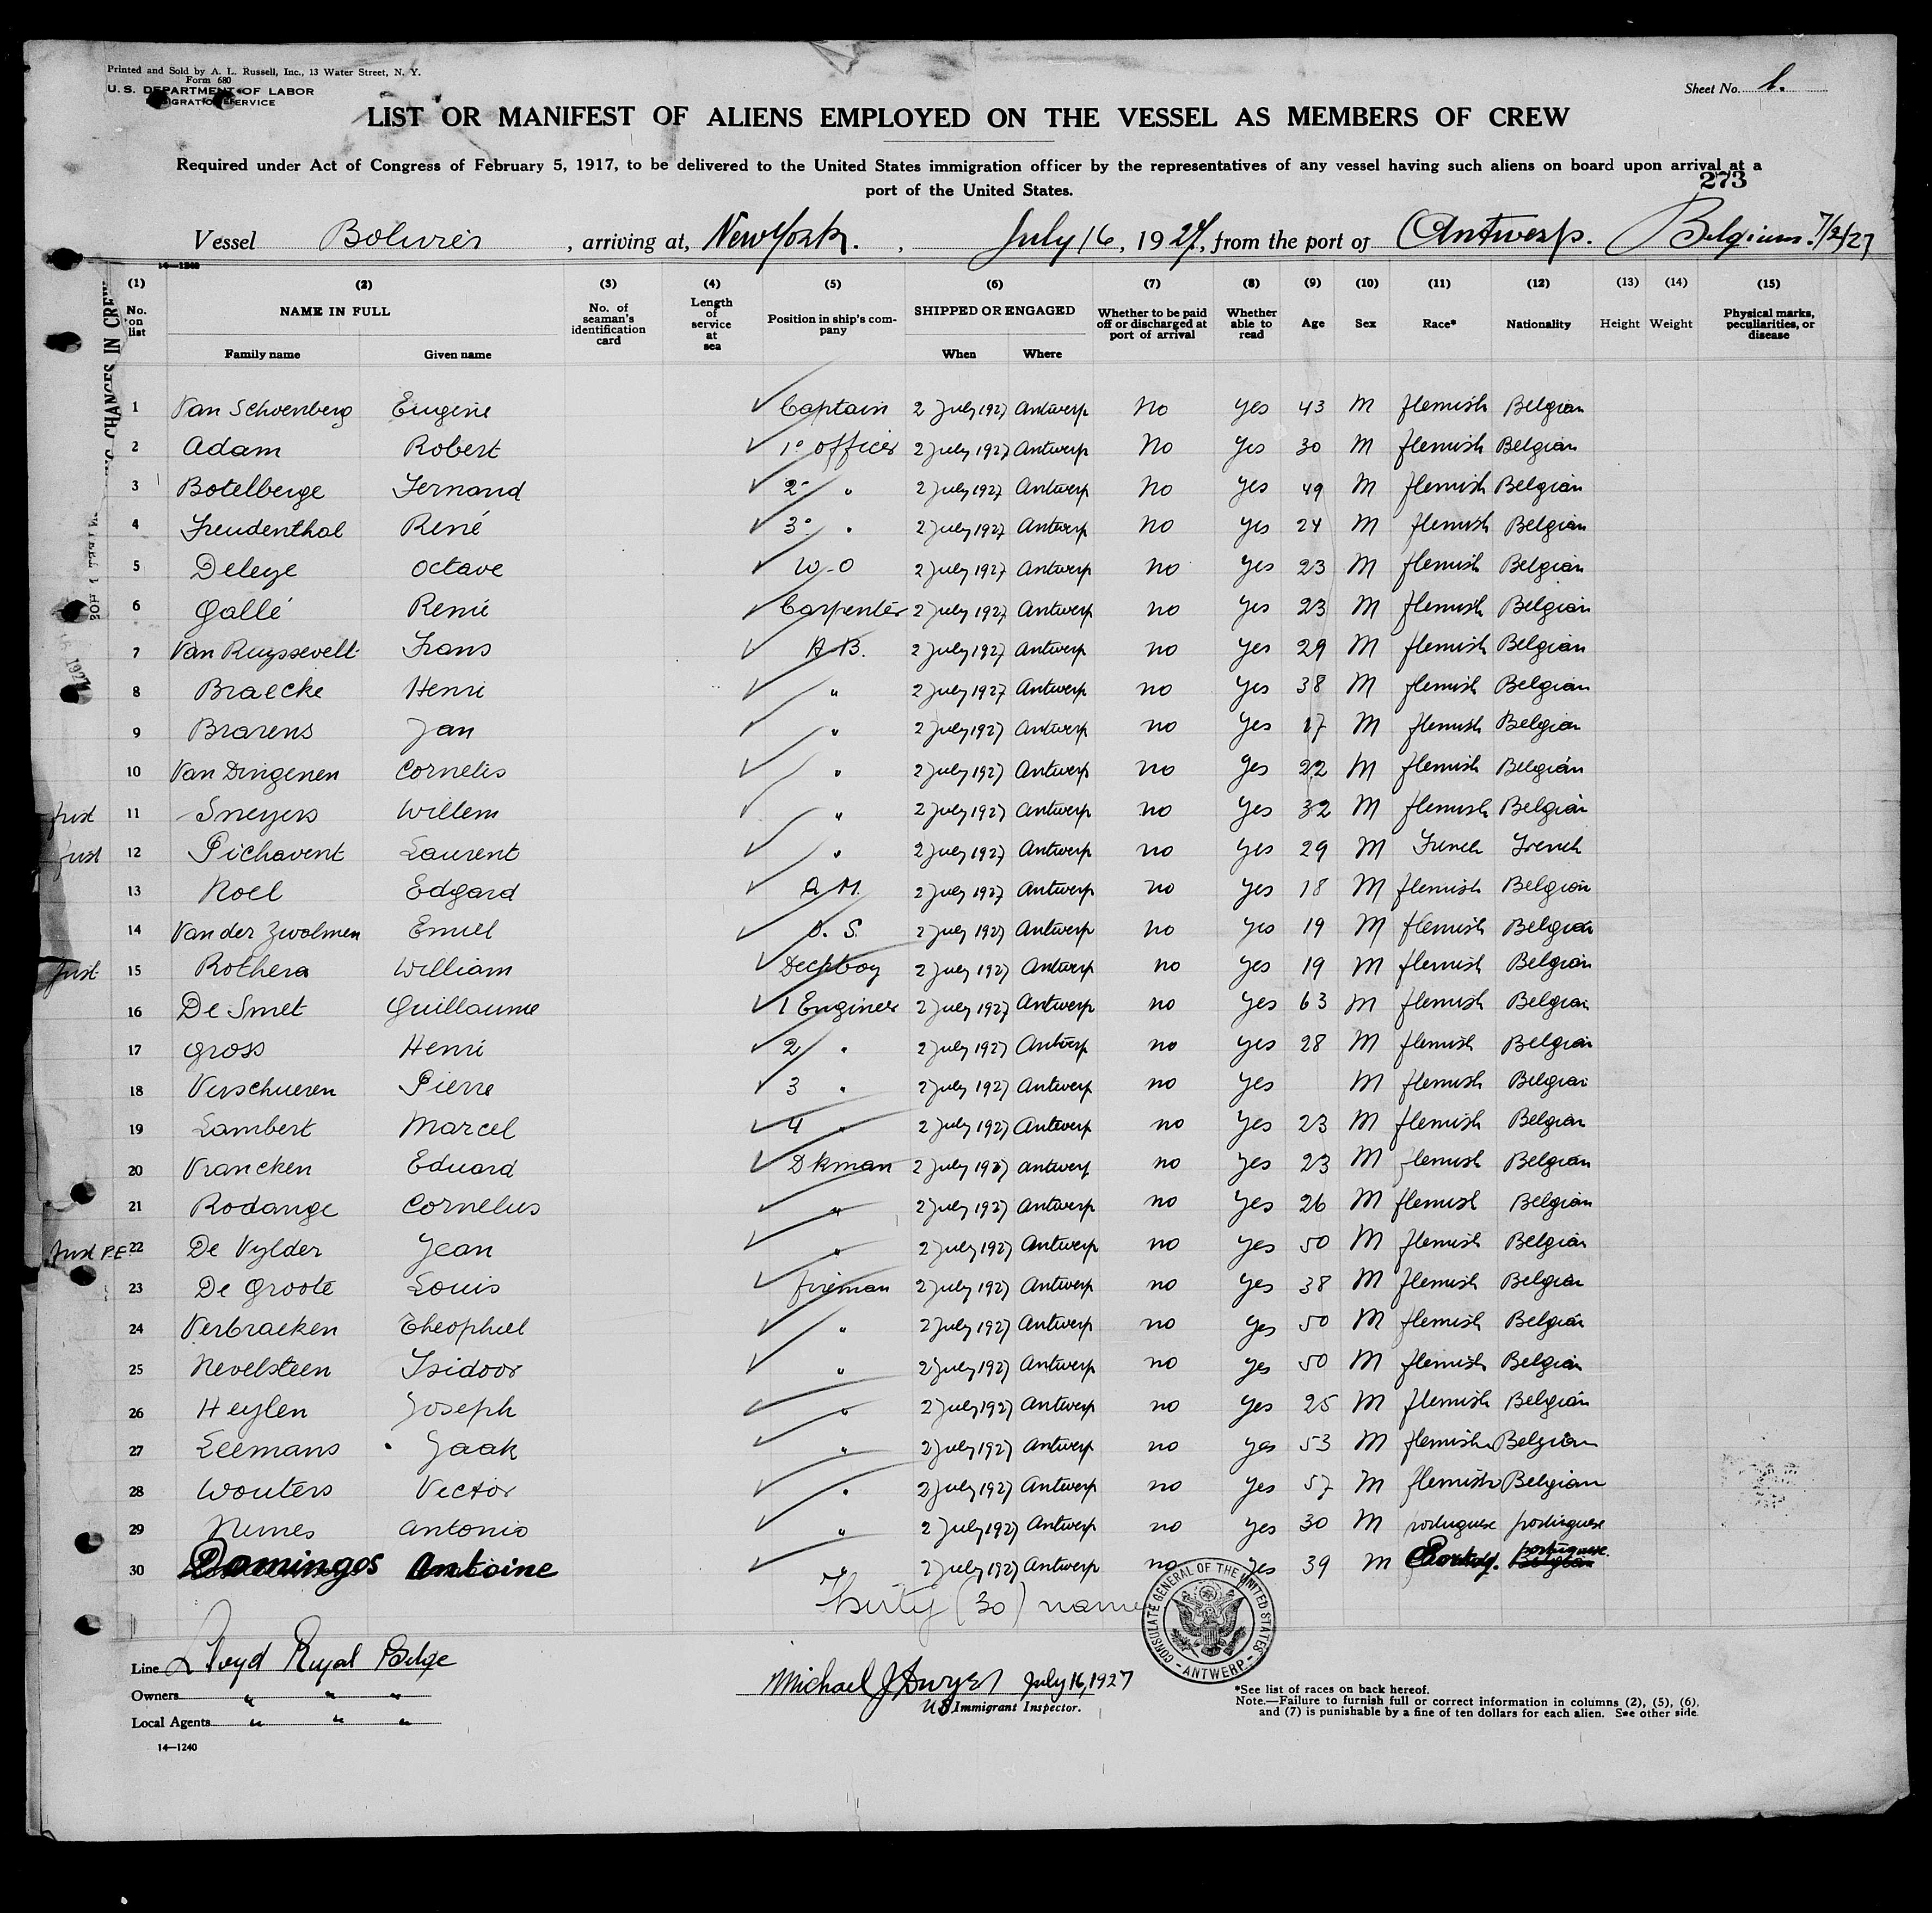 Printed and Sold by A. L. Russell, Inc., 13 Water Street, N. Y.
Form 680
U. S. DEPARTMENT OF LABOR
IMMIGRATION SERVICE
Sheet No. 1.
LIST OR MANIFEST OF ALIENS EMPLOYED ON THE VESSEL AS MEMBERS OF CREW
Required under Act of Congress of February 5, 1917, to be delivered to the United States immigration officer by the representatives of any vessel having such aliens on board upon arrival at a
port of the United States.
273
Vessel , arriving at, New York. , July 16, 1927, from the port of Antwerp. Belgium. 7/2/27
14—1240
(1) (2) (3) (4) (5) (6) (7) (8) (9) (10) (11) (12) (13) (14) (15)
No. on list NAME IN FULL Family name Given name No. of seaman's identification card Length of service at sea Position in ship's company SHIPPED OR ENGAGED When Where Whether to be paid off or discharged at port of arrival Whether able to read Age Sex Race* Nationality Height Weight Physical marks, peculiarities, or disease
CHANGES IN CREW
1 Van Schoenberg Eugene Captain 2 July 1927 Antwerp No Yes 43 M flemish Belgian
2 Adam Robert 1° officer 2 July 1927 Antwerp No Yes 30 M flemish Belgian
3 Botelberge Fernand 2° " 2 July 1927 Antwerp No Yes 49 M flemish Belgian
4 Freudenthal René 3° " 2 July 1927 Antwerp No Yes 24 M flemish Belgian
5 Deleye Octave W-O 2 July 1927 Antwerp no Yes 23 M flemish Belgian
6 Gallé René Carpenter 2 July 1927 Antwerp no Yes 23 M flemish Belgian
7 Van Ruyssevelt Frans A-B. 2 July 1927 Antwerp no Yes 29 M flemish Belgian
8 Braecke Henri " 2 July 1927 Antwerp no Yes 38 M flemish Belgian
9 Brarens Jan " 2 July 1927 Antwerp no Yes 17 M flemish Belgian
10 Van Dingenen Cornelis " 2 July 1927 Antwerp no Yes 22 M flemish Belgian
11 Sneyers Willem " 2 July 1927 Antwerp no Yes 32 M flemish Belgian
12 Pichavent Laurent " 2 July 1927 Antwerp no Yes 29 M French French
13 Noel Edgard 2 July 1927 Antwerp no Yes 18 M flemish Belgian
14 Van der Zwalmen Emiel O. S. 2 July 1927 Antwerp no Yes 19 M flemish Belgian
15 Rothera William Deckboy 2 July 1927 Antwerp no Yes 19 M flemish Belgian
16 De Smet Guillaume 1 Enginer 2 July 1927 Antwerp no Yes 63 M flemish Belgian
17 Gross Henri 2 " 2 July 1927 Antwerp no Yes 28 M flemish Belgian
18 Verschueren Pierre 3 " 2 July 1927 Antwerp no Yes M flemish Belgian
19 Lambert Marcel 4 " 2 July 1927 Antwerp no Yes 23 M flemish Belgian
20 Vrancken Eduard Dkman 2 July 1927 Antwerp no Yes 23 M flemish Belgian
21 Rodange Cornelius " 2 July 1927 Antwerp no Yes 26 M flemish Belgian
P.E. 22 De Vylder Jean " 2 July 1927 Antwerp no Yes 50 M flemish Belgian
23 De Groote Louis fireman 2 July 1927 Antwerp no Yes 38 M flemish Belgian
24 Verbraeken Theophiel " 2 July 1927 Antwerp no Yes 50 M flemish Belgian
25 Nevelsteen Isidoor " 2 July 1927 Antwerp no Yes 50 M flemish Belgian
26 Heylen Joseph " 2 July 1927 Antwerp no Yes 25 M flemish Belgian
27 Leemans Jaak " 2 July 1927 Antwerp no Yes 53 M flemish Belgian
28 Wouters Vector " 2 July 1927 Antwerp no Yes 57 M flemish Belgian
29 Nunes Antonio " 2 July 1927 Antwerp no Yes 30 M portuguese portuguese
30 Domingos Antoine 2 July 1927 Antwerp no Yes 39 M portuguese.
Thirty (30) names
CONSULATE GENERAL OF THE UNITED STATES - ANTWERP -
Line Lloyd Royal Belge
Owners " " "
Local Agents " " "
Michael J Dwyer July 16, 1927
U S Immigrant Inspector.
*See list of races on back hereof.
Note.—Failure to furnish full or correct information in columns (2), (5), (6),
and (7) is punishable by a fine of ten dollars for each alien. See other side.
14—1240